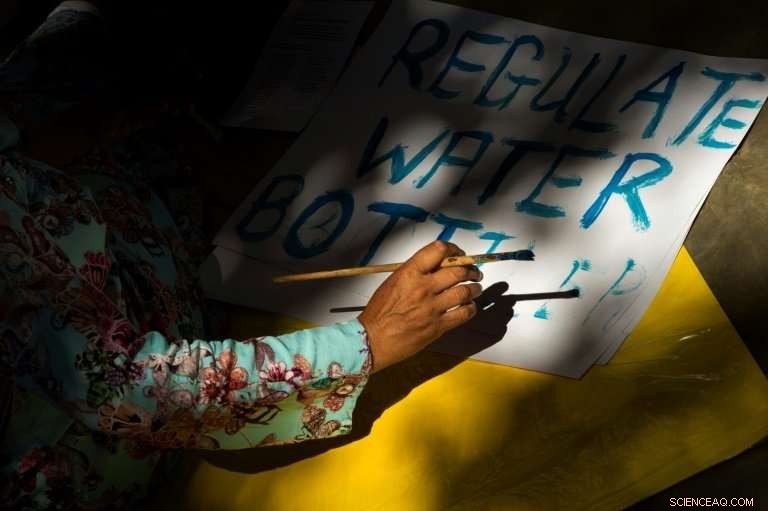 REGULATE
WATER
BOTTLER
SCIENCEAQ.COM